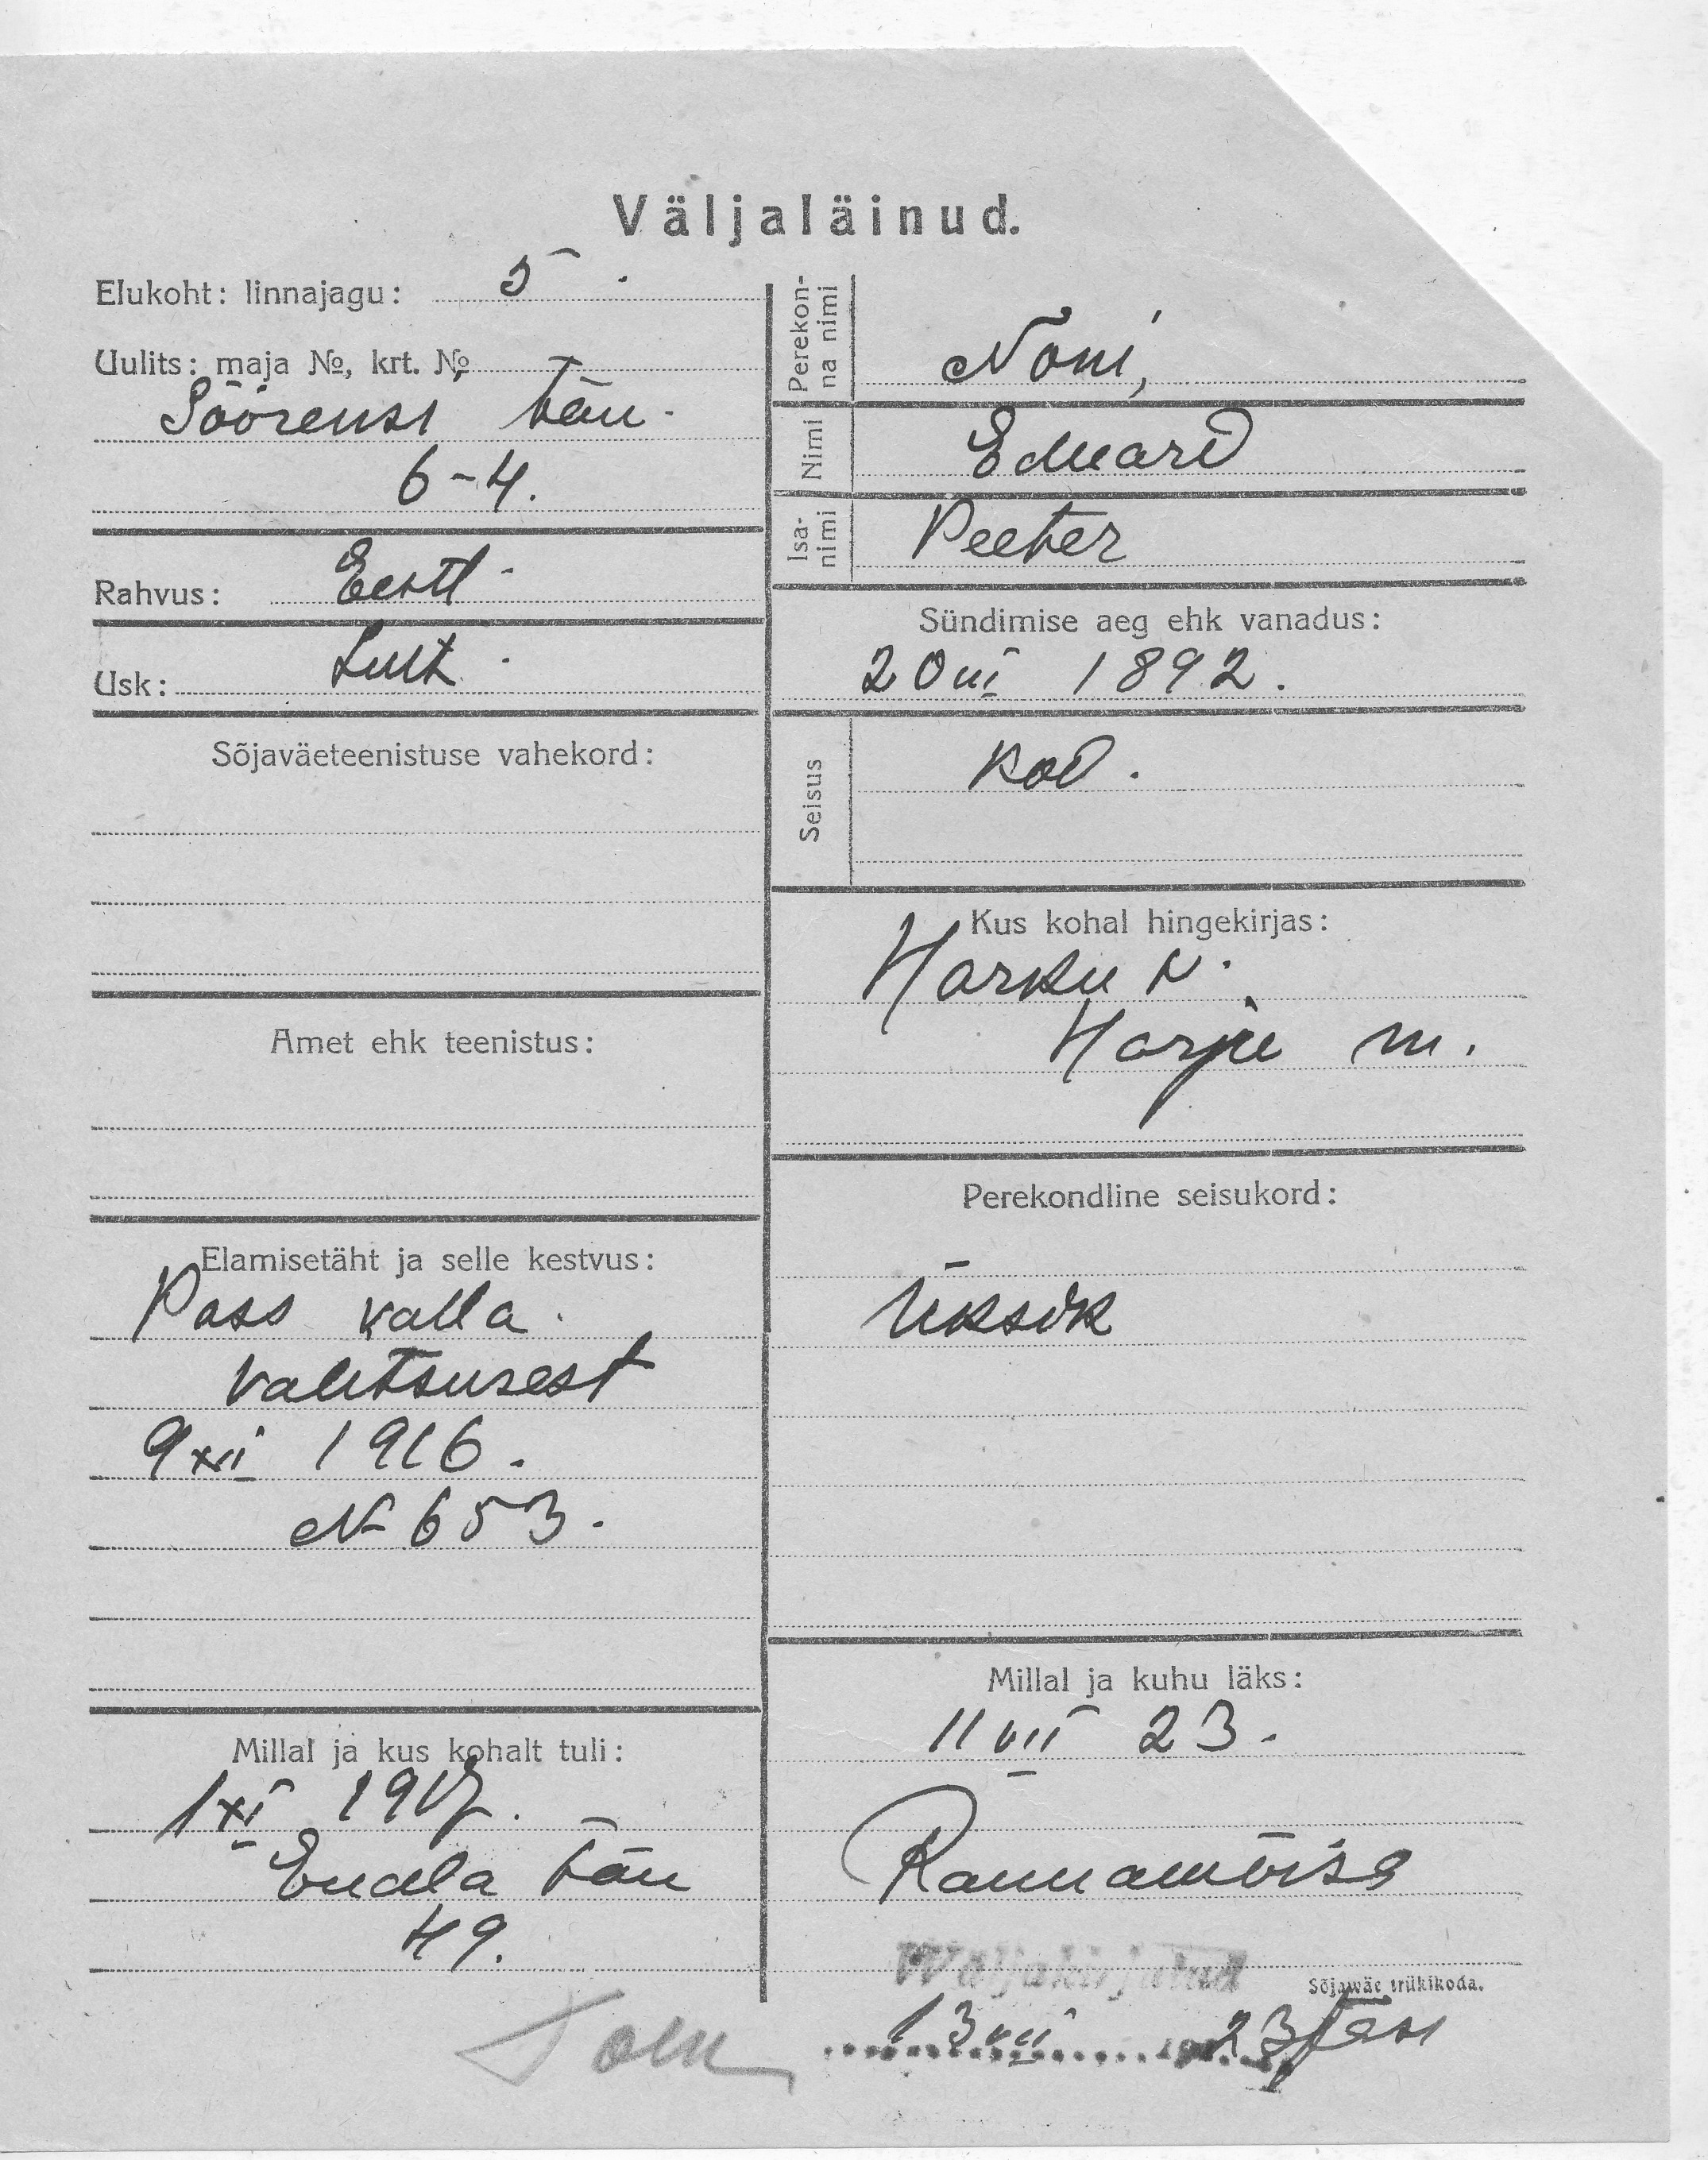 Väljaläinud.
Elukoht: linnajagu: 5.
Uulits: maja №, krt. №
Söörensi tän.
6-4.
Rahvus: Eesti.
Usk: Lut.
Sõjaväeteenistuse vahekord:
Amet ehk teenistus:
Elamisetäht ja selle kestvus:
Pass valla
valitsusest
9 XII 1916.
N 653.
Millal ja kus kohalt tuli:
1 XI 1917.
Endla tän
49.
Perekonna nimi
Nõni,
Nimi
Eduard
Isa-nimi
Peeter
Sündimise aeg ehk vanadus:
20 III 1892.
Seisus
kod.
Kus kohal hingekirjas:
Harku v.
Harju m.
Perekondline seisukord:
Üksik
Millal ja kuhu läks:
11 VII 23.
Rannamõisa
Wäljakirjutud
Sõjawäe trükikoda.
13 VII 23